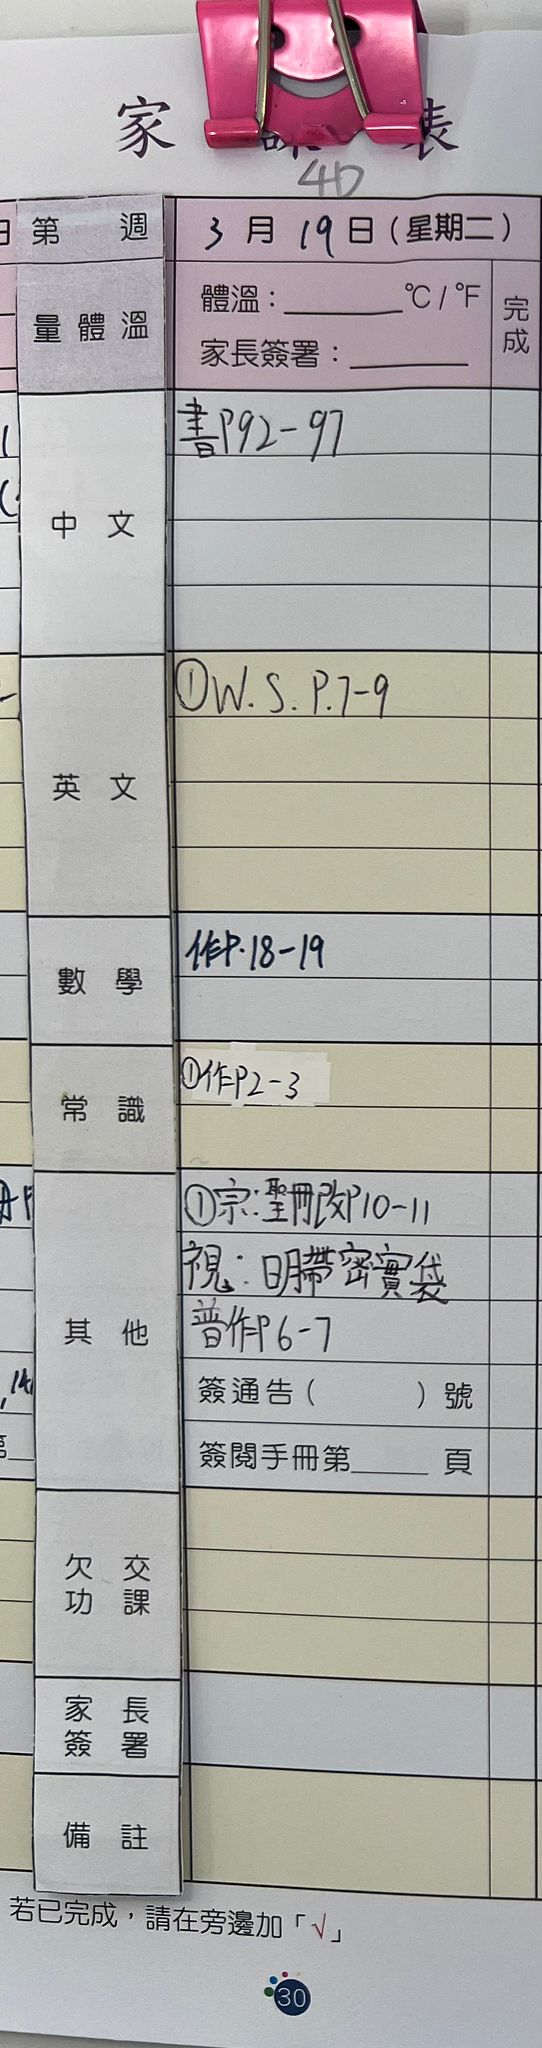 家 課 表
4D
第 週
3 月 19 日 (星期二)
量體溫
體溫：______°C / °F
家長簽署：______
完成
中 文
書P92-97
英 文
①W.S. P.7-9
數 學
作P.18-19
常 識
①作P2-3
其 他
①宗:聖冊改P10-11
視：明帶密實袋
普作P6-7
簽通告 ( ) 號
簽閱手冊第____ 頁
欠 交
功 課
家 長
簽 署
備 註
若已完成，請在旁邊加「√」
30